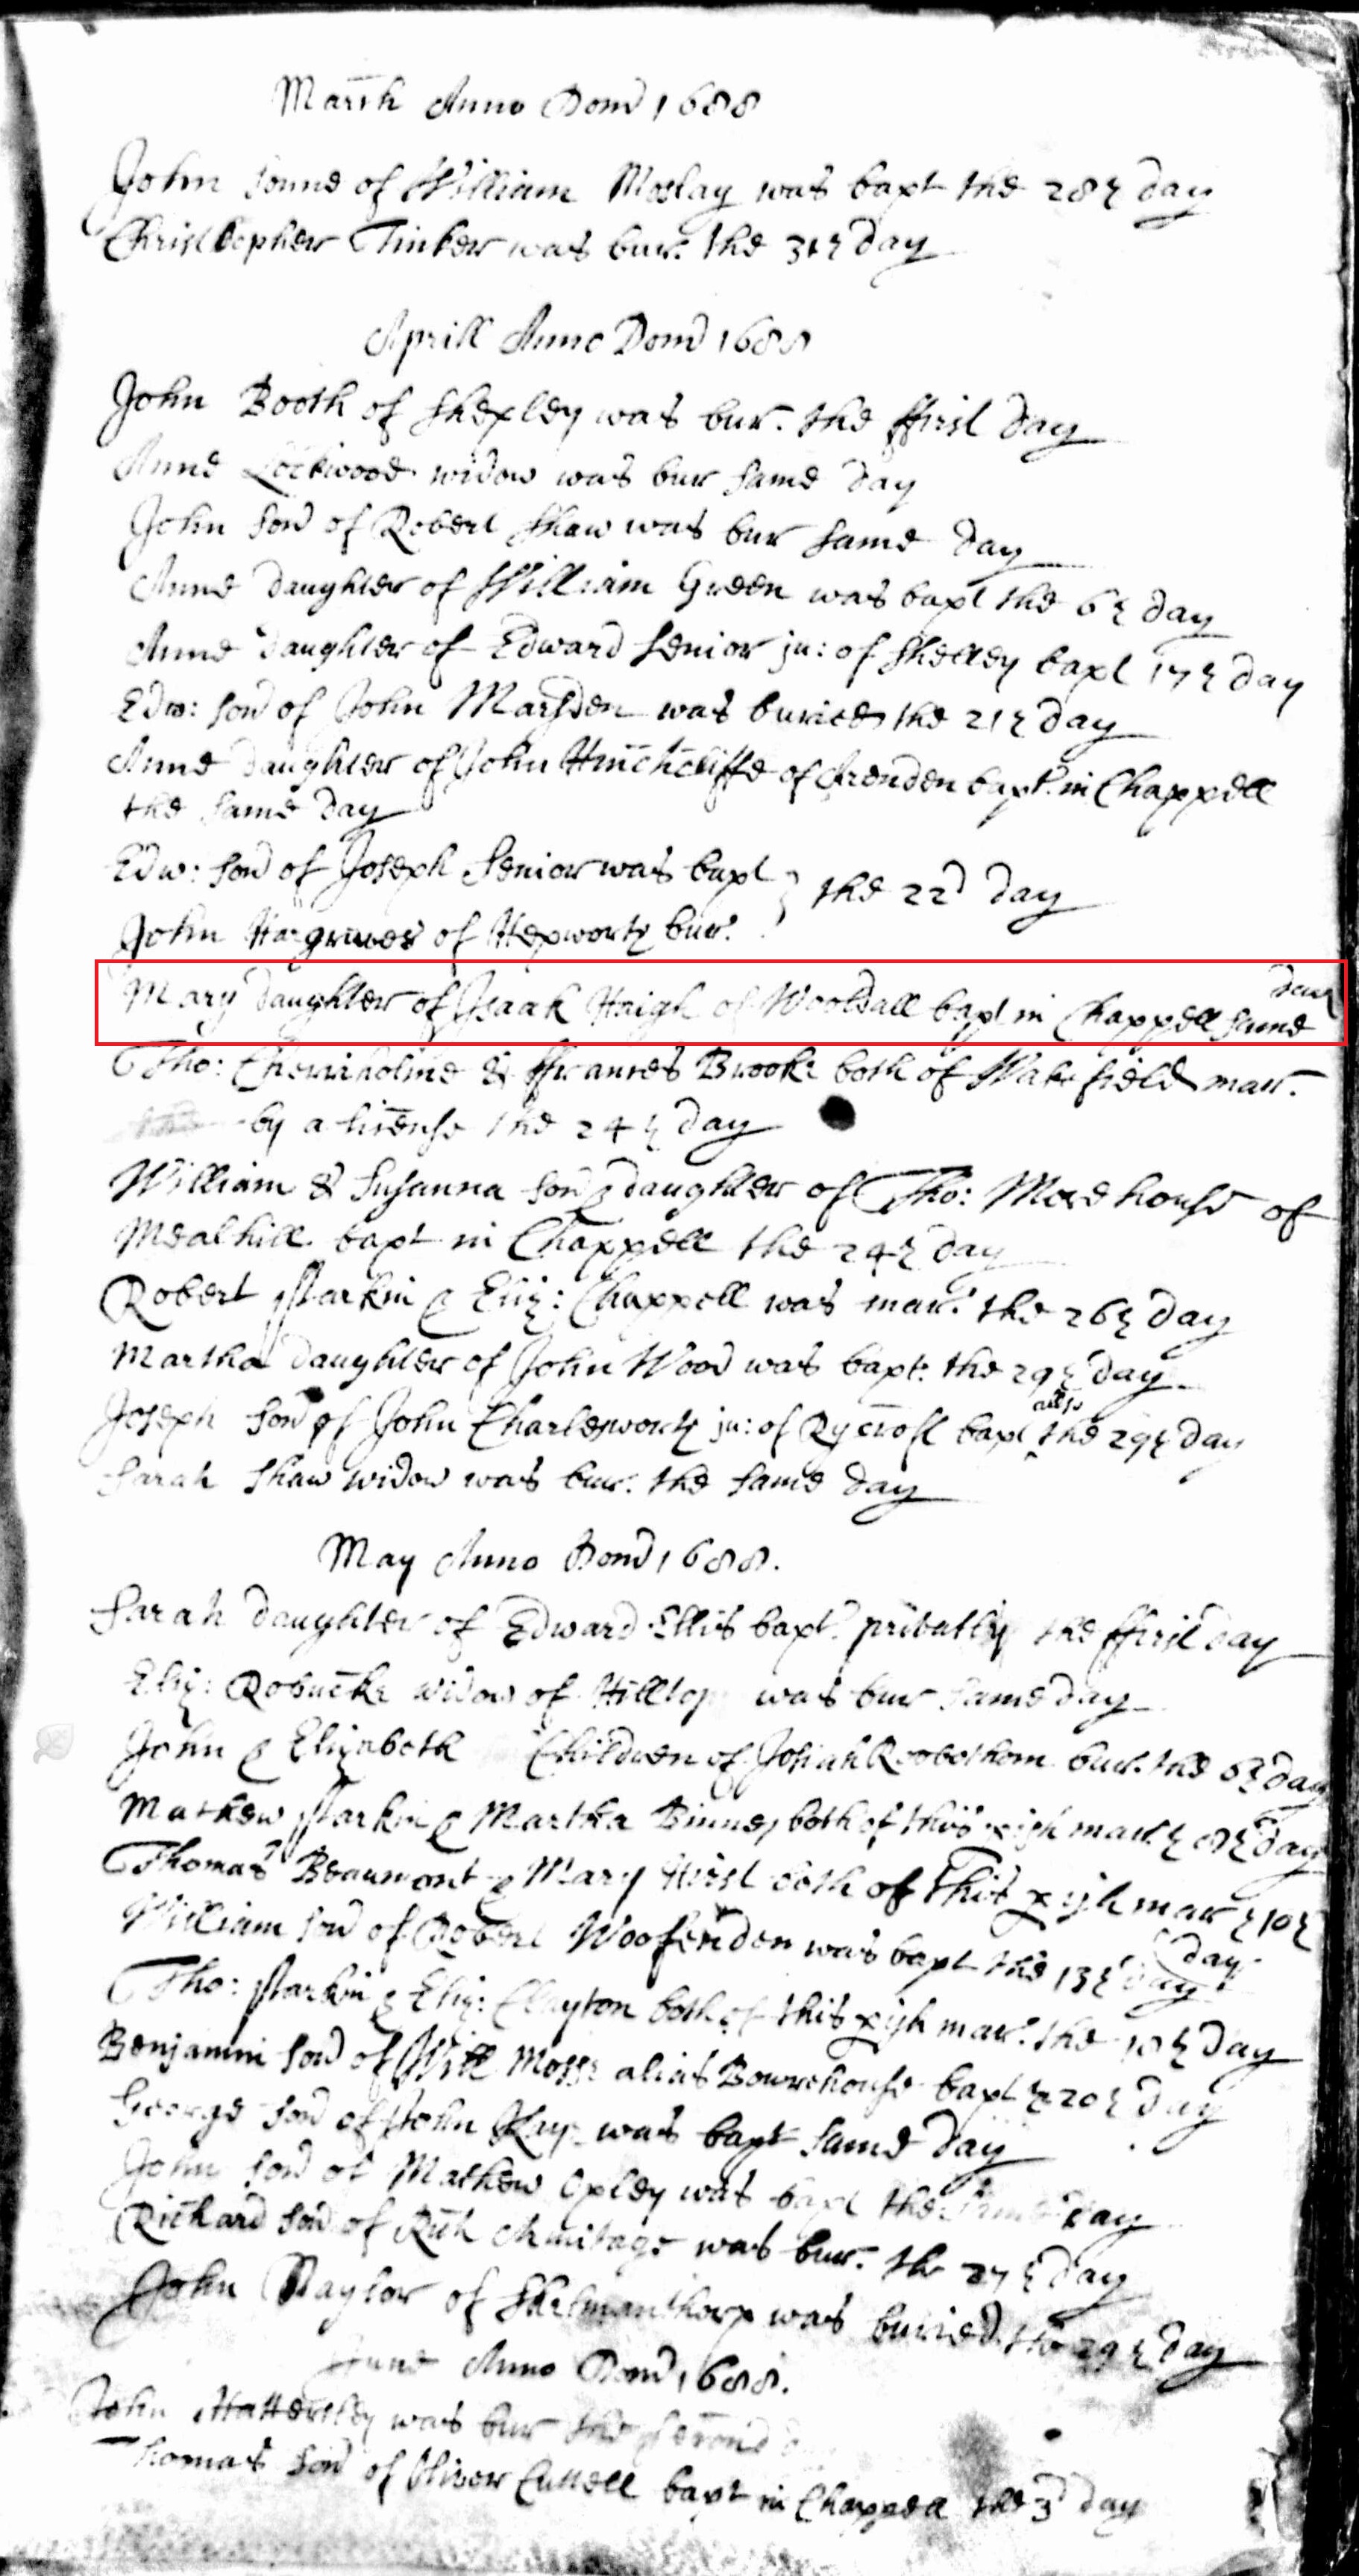 March Anno Dom 1688
John sonne of William Moslay was bapt the 28th day
Christopher Tinker was bur. the 31th day
Aprill Anno Dom 1688
John Booth of Shepley was bur. the ffirst day
Anne Lockwood widow was bur same day
John son of Robert Shaw was bur same day
Anne daughter of William Green was bapt the 6th day
Anne daughter of Edward Senior ju: of Shelley bapt 17th day
Edw: son of John Marsden was buried the 21th day
Anne daughter of John Hinchcliffe of bapt. in Chappell
the same day
Edw: son of Joseph Senior was bapt
the 22d day
John Hargraves of Hepworth bur.
Mary daughter of Isaak Haigh of Wooldall bapt in Chappell same day
Tho: & ffrances Brooke both of Wakefield mar.
by a license the 24th day
William & Susanna son & daughter of Tho: Morehouse of
Mealhill bapt in Chappell the 24th day
Robert & Eliz: Chappell was mar. the 26th day
Martha daughter of John Wood was bapt: the 29th day
Joseph son of John Charlesworth ju: of Rycroft bapt allso the 29th day
Sarah Shaw widow was bur. the same day
May Anno Dom 1688.
Sarah daughter of Edward Ellis bapt. privatly the ffirst day
Eliz: Robucke widow of Hilltop was bur same day
John & Elizabeth Children of Josiah Roobothom bur. the day
Mathew & Martha Binney both of this pish mar. day
Thomas Beaumont & Mary Hirst both of this pish mar 10th
day
William son of Robert Woofenden was bapt the 13th day
Tho: & Eliz: Clayton both of this pish mar. the day
Benjamin son of Will Mosse alias Bowrehouse bapt 20th day
George son of John Kay was bapt same day
John son of Mathew Oxley was bapt the same day
Richard son of Rich Armitage was bur. the 27th day
John Naylor of Skelmanthorp was buried the 29th day
June Anno Dom 1688.
John Hattersley was bur the second
Thomas son of Oliver Cuttell bapt in Chappell the 3d day